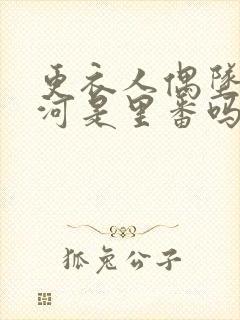 更衣人偶坠
河是里番吗
狐兔公子